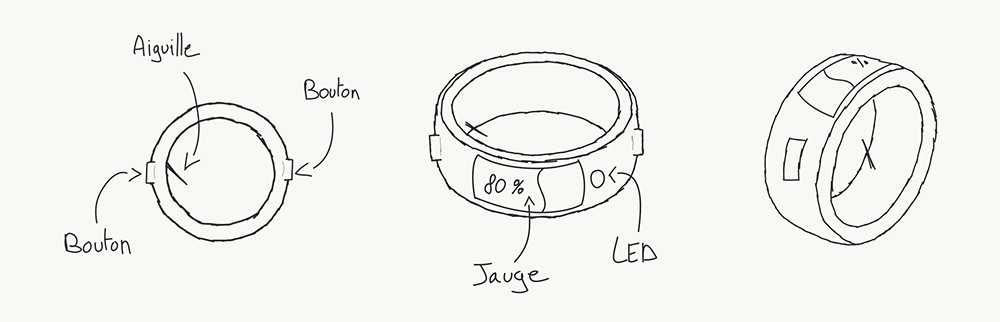 Aiguille
Bouton
Bouton
80 %
Jauge
LED
%